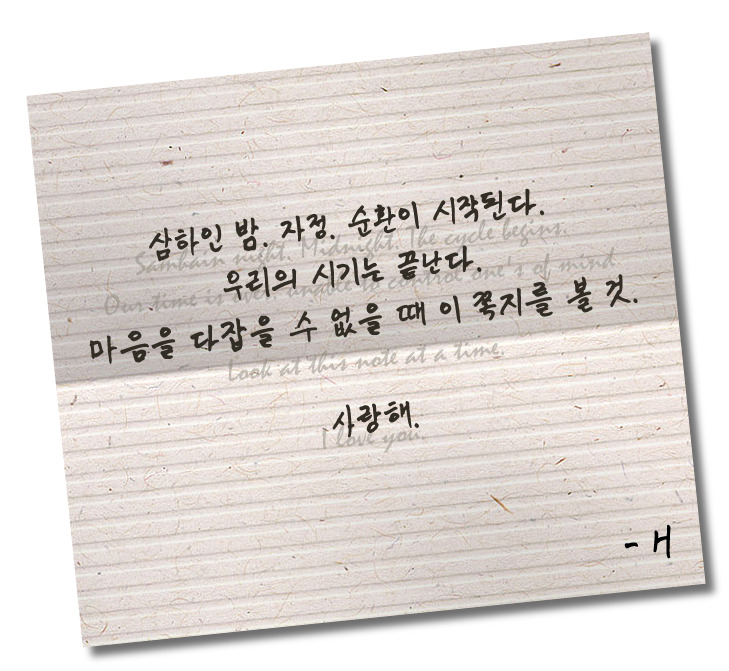 삼하인 밤. 자정. 순환이 시작된다.
Samhain night. Midnight. The cycle begins.
우리의 시기는 끝난다.
Our time is over. unable to control one's of mind
마음을 다잡을 수 없을 때 이 쪽지를 볼 것.
Look at this note at a time.
사랑해.
I love you.
- H